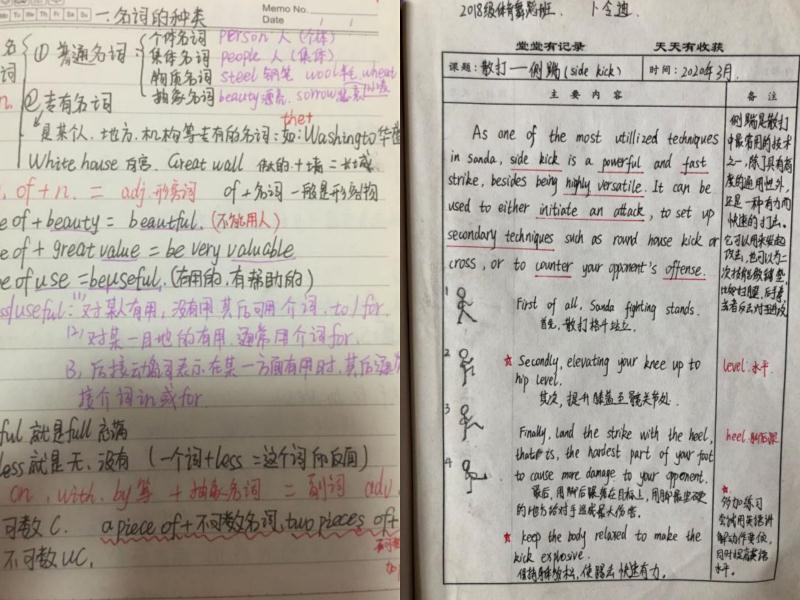 Memo No.
Date
Mo Tu We Th Fr Sa Su
一.名词的种类
名词
① 普通名词
个体名词 person 人 (个体)
集体名词 people 人 (集体)
物质名词 steel 钢笔 wool 毛, wheat 小麦
抽象名词 beauty 漂亮, sorrow 悲哀
② 专有名词
the+
是某人、地方、机构等专有的名词:如:Washington 华
White house 白宫. Great wall 伟大的+墙=长城
of+n. = adj 形容词 of+名词一般是形容物
e of + beauty = beautiful. (不能用人)
e of + great value = be very valuable
e of use = be useful. (有用的,有帮助的)
useful: (1) 对某人有用,没有用其后可用介词, to / for
(2) 对某一目地的有用,通常用介词 for.
3, 后接动编词表示在某一方面有用时,其后通
接介词 in 或 for
ful 就是 full 充满
less 就是无、没有 (一个词+less=这个词的反面)
on, with, by 等 + 抽象名词 = 副词 adv
可数 C. a piece of + 不可数名词, two pieces of +
不可数 UC.
2018级体育舞蹈班.
堂堂有记录 天天有收获
课题: 散打——侧踹 (side kick)
时间: 2020年3月.
主要内容
备注
As one of the most utillized techniques
in sanda, side kick is a powerful and fast
strike, besides being highly versatile. It can be
used to either initiate an attack, to set up
secondary techniques such as round house kick or
cross, or to counter your opponent's offense.
1 First of all, Sanda fighting stands.
首先, 散打格斗站立.
2 ★ Secondly, elevating your knee up to
hip level.
其次, 提升膝盖至髋关节处.
3
Finally, land the strike with the heel,
that is, the hardest part of your foot
4 to cause more damage to your opponent.
最后, 用脚后跟落在目标上, 用脚最坚硬
的地方给对手造成最大伤害.
★ keep the body relaxed to make the
kick explosive.
保持身体放松, 使踢击快速有力.
侧踹是散打
中最常用的技术
之一, 除了具有高
度的通用性外,
还是一种有力而
快速的打击.
它可以用来发起
攻击, 也可以为二
次技能做铺垫,
level: 水平
heel: 脚后跟
★
多加练习
尝试用英语讲
解动作要领,
同时提高英语
水平.